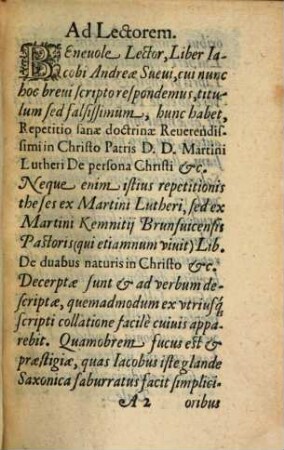 Ad Lectorem.
BEneuole Lector, Liber Ia-
cobi Andreæ Sueui, cui nunc
hoc breui scripto respondemus, titu-
lum sed falsissimum, hunc habet,
Repetitio sanæ doctrinæ Reuerendis-
simi in Christo Patris D. D. Martini
Lutheri De persona Christi &c.
Neque enim istius repetitionis
theses ex Martini Lutheri, sed ex
Martini Kemnitij Brunsuicensis
Pastoris (qui etiamnum viuit) Lib.
De duabus naturis in Christo &c.
Decerptæ sunt & ad verbum de-
scriptæ, quemadmodum ex vtriusq́
scripti collatione facilè cuiuis appa-
rebit. Quamobrem fucus est &
præstigiæ, quas Iacobus iste glande
Saxonica saburratus facit simplici-
A 2 oribus